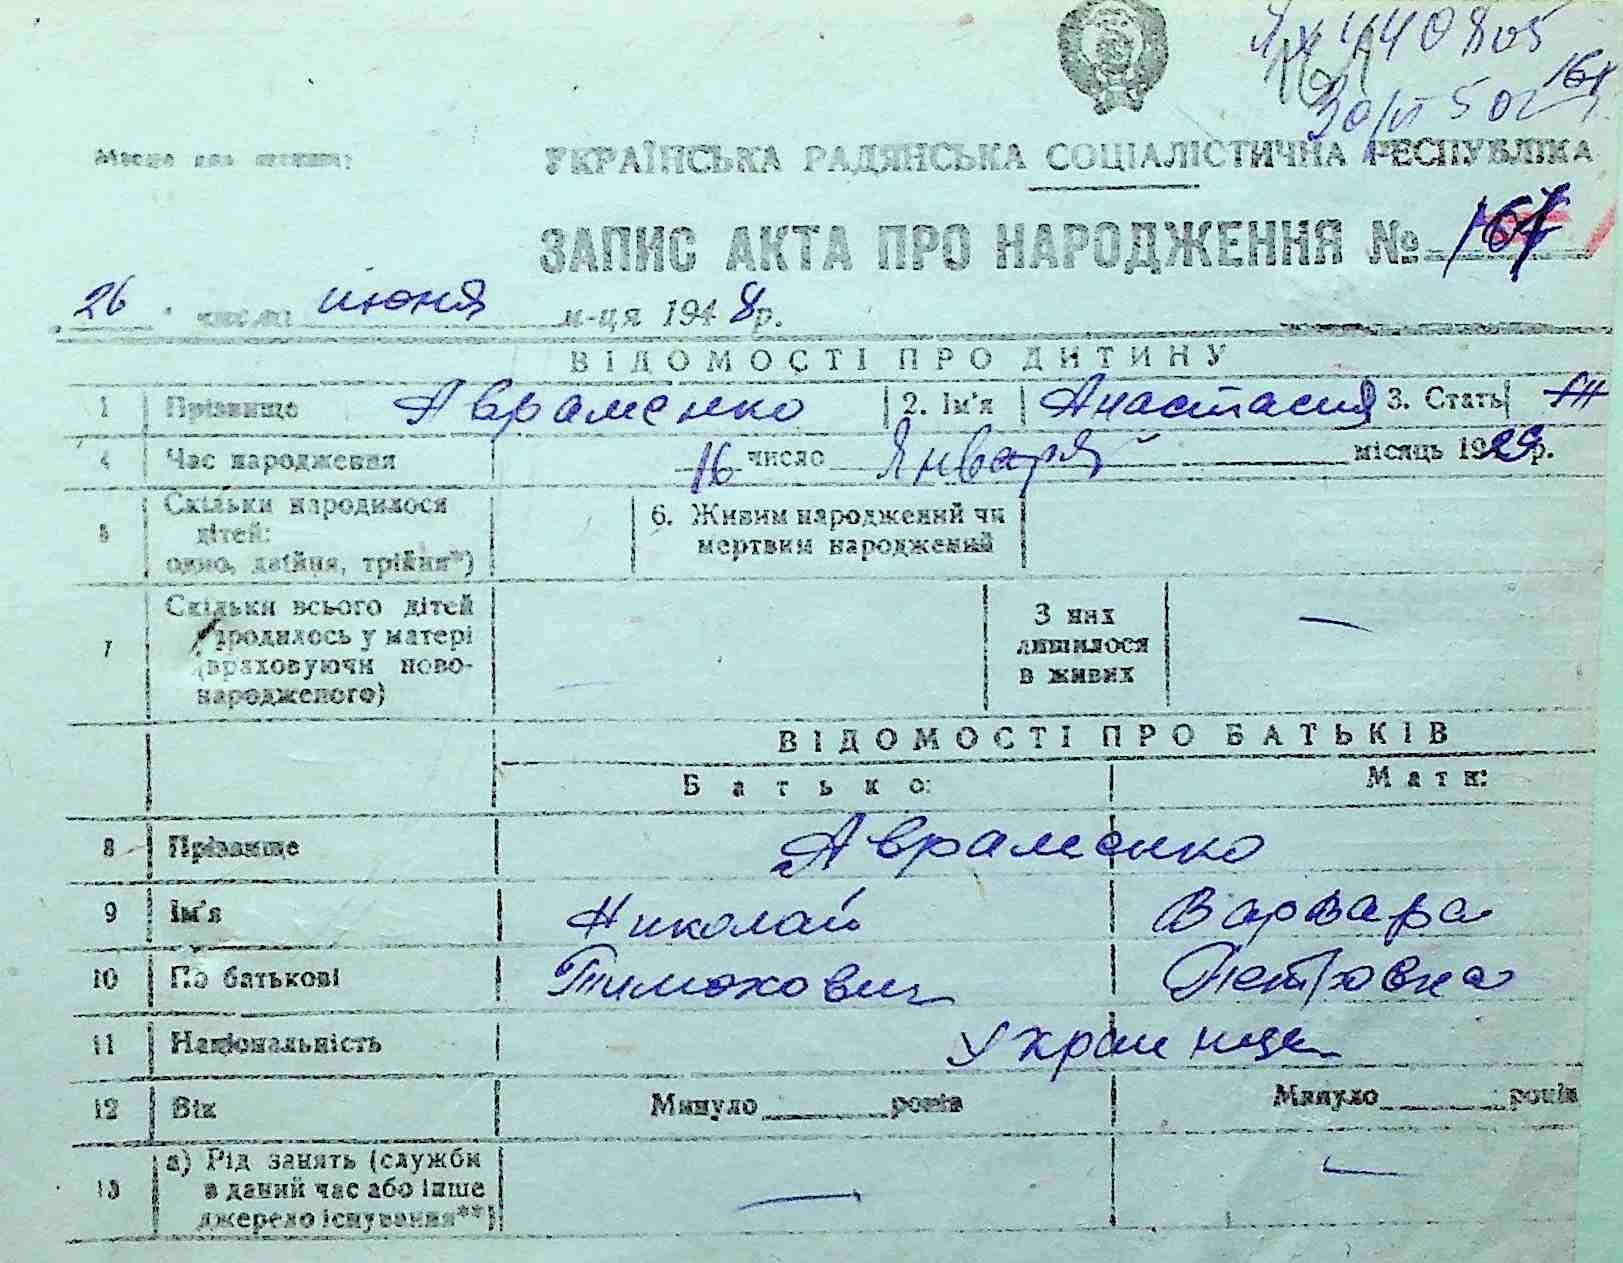 Місце для штампу:
УКРАЇНСЬКА РАДЯНСЬКА СОЦІАЛІСТИЧНА РЕСПУБЛІКА
ЗАПИС АКТА ПРО НАРОДЖЕННЯ №
26 числа июня м-ця 1948 р.
ВІДОМОСТІ ПРО ДИТИНУ
1 Прізвище Авраменко 2. Ім'я Анастасия 3. Стать
4 Час народження 16 число Января місяць 1929 р.
5 Скільки народилося 6. Живим народжений чи
дітей: мертвим народжений
одно, двійня, трійня*)
7 Скільки всього дітей З них
вродилось у матері лишилося
(враховуючи ново- в живих —
народженого) —
ВІДОМОСТІ ПРО БАТЬКІВ
Батько: Мати:
8 Прізвище Авраменко
9 Ім'я Николай Варвара
10 По батькові Тимохович Петровна
11 Національність Украинцы
12 Вік Минуло років Минуло років
13 а) Рід занять (служби
в даний час або інше
джерело існування**) — —